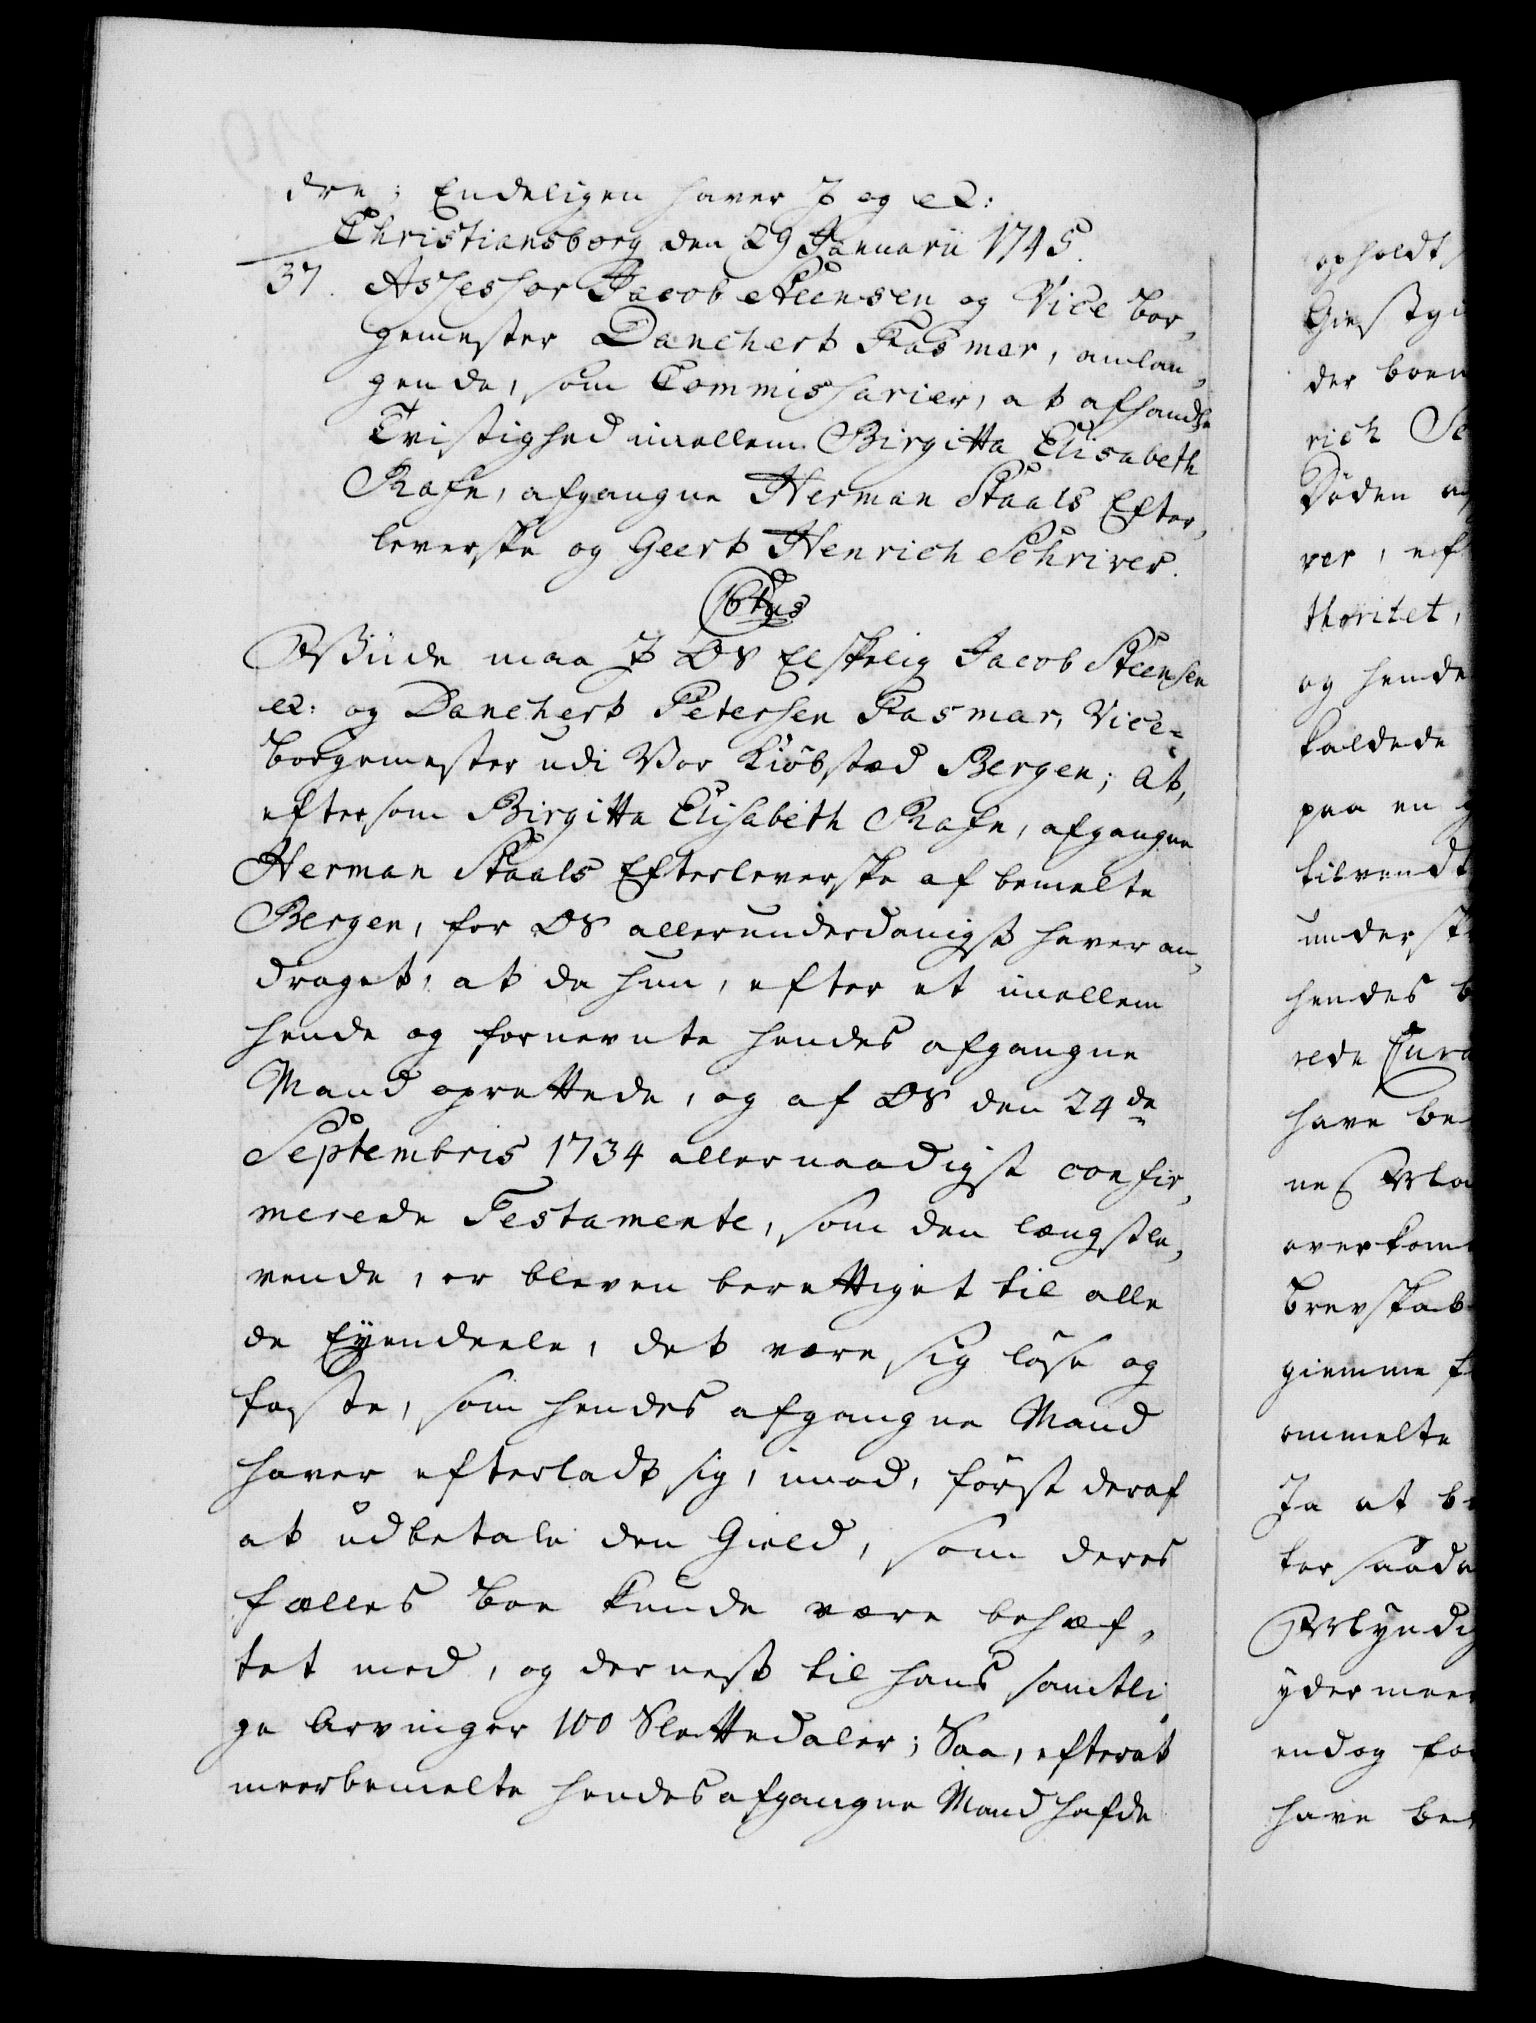 dre; Endeligen haver I og etc:
Christiansborg den 29 Januarii 1745.
37. Assessor Jacob Steensen og Vice bor-
gemester Danchert Fasmer, anlan-
gende, som Commissarier, at afhandle
Tvistighed imellem Birgitta Elisabeth
Rafn, afgangne Herman Staals Efter-
leverske og Geert Henrich Schriver.
C 6tus
Giide maa I OS Elskelig Jacob Steensen
etc: og Danchert Petersen Fasmer, Vice-
borgemester udi Vor Kiöbstæd Bergen; At,
eftersom Birgitta Elisabeth Rafn, afgangne
Herman Staals Efterleverske af bemelte
Bergen, for OS allerunderdanigst haver an-
draget, at da hun, efter et imellem
hende og fornevnte hendes afgangne
Mand oprettede, og af OS den 24de
Septembris 1734 allernaadigst confir-
merede Testamente, som den længstle-
vende, er bleven berettiget til alle
de Eyendeele, det være sig löse og
faste, som hendes afgangne Mand
haver efterladt sig, imod, först deraf
at udbetale den Gield, som deres
fælles boe kunde være behæf-
tet med, og dernest til hans samtli-
ge Arvinger 100 Slettedaler; Saa, efterat
meerbemelte hendes afgangne Mand hafde
opholdt
Giestgi
der boen
rich Sc
Döden
ver, ef
thoritet,
og hende
kaldede
paa en
tilvendt
underst
hendes b
rede Cura
have be
nes
overkom
brevskab
giemme
ommelte
Ja at b
ter saade
Mÿndig
ydermeer
endog for
have be